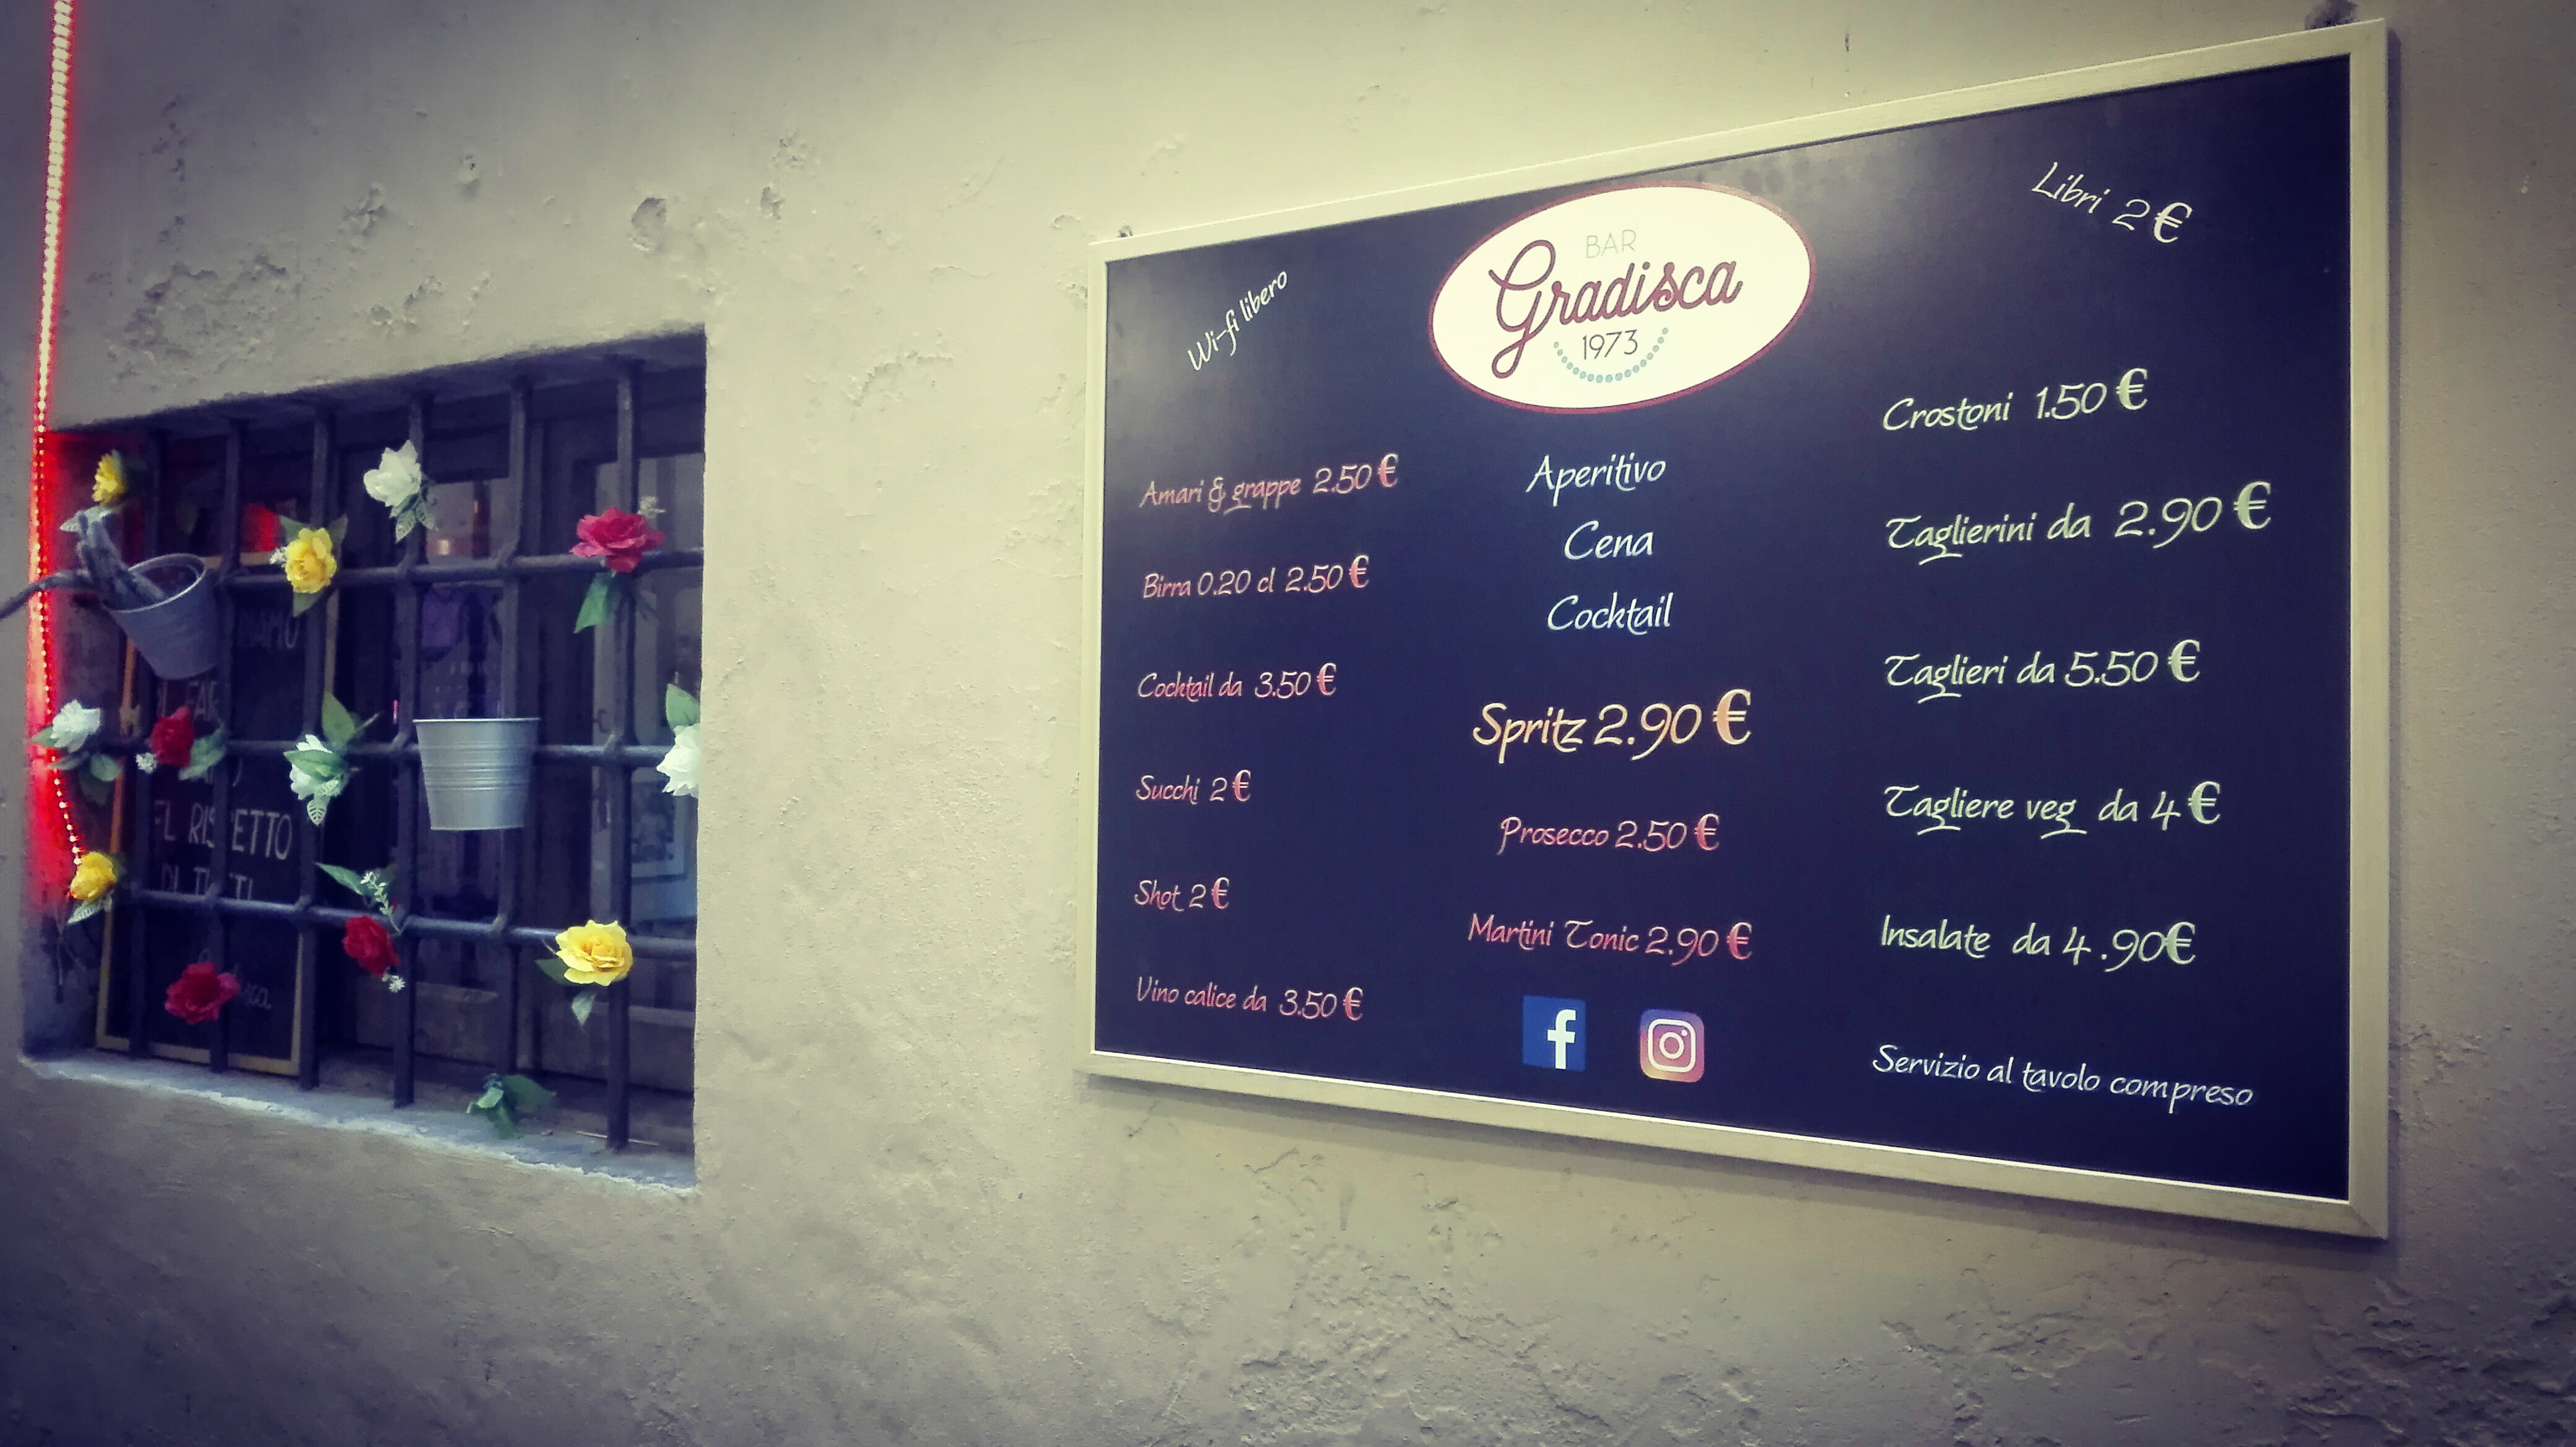 EL RISPETTO
DI TUTTI
Wi-fi libero
BAR
Gradisca
1973
Libri 2€
Amari & grappe 2.50€
Birra 0.20 cl 2.50€
Cocktail da 3.50€
Succhi 2€
Shot 2€
Vino calice da 3.50€
Aperitivo
Cena
Cocktail
Spritz 2.90€
Prosecco 2.50€
Martini Tonic 2.90€
f
Crostoni 1.50€
Taglierini da 2.90€
Taglieri da 5.50€
Tagliere veg da 4€
Insalate da 4.90€
Servizio al tavolo compreso